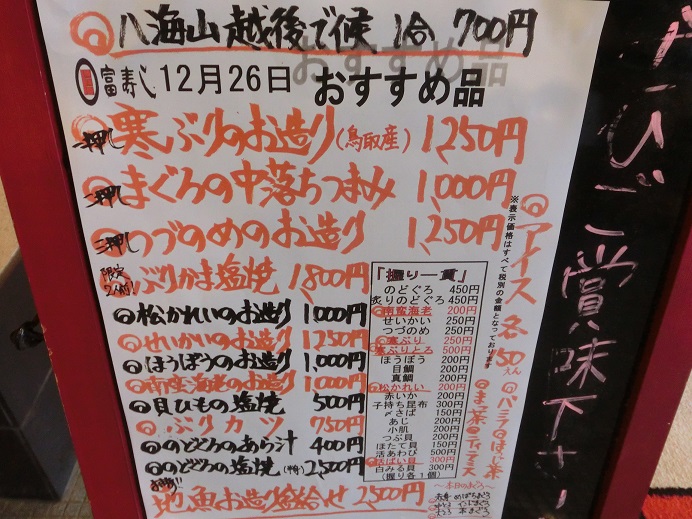 八海山 越後で候 1合 700円
富寿し 12月26日 おすすめ品
一押し 寒ぶりのお造り(鳥取産) 1,250円
二押し まぐろの中落ちつまみ 1,000円
三押し つづのめのお造り 1,250円
限定 ぶりかま塩焼 1,800円
松かれいのお造り 1,000円
せいかいのお造り 1,250円
ほうぼうのお造り 1,000円
南蛮海老のお造り 1,000円
貝ひもの塩焼 500円
ぶりカツ 750円
のどぐろのあら汁 400円
のどぐろの塩焼(半身) 2,500円
地魚お造り盛合せ 2,500円
「握り一貫」
のどぐろ 450円
炙りのどぐろ 450円
南蛮海老 200円
せいかい 250円
つづのめ 250円
寒ぶり 250円
寒ぶりとろ 500円
ほうぼう 200円
目鯛 200円
真鯛 200円
松かれい 200円
赤いか 200円
子持ち昆布 300円
〆さば 150円
あじ 200円
小肌 200円
つぶ貝 200円
ほたて貝 150円
活あわび 500円
ばい貝 300円
白みる貝 300円
(握り各1個)
※表示価格はすべて税別の金額となっております
アイス 各150えん
バニラ ほうじ茶
まっ茶
~本日のまぐろ~
ぜひご賞味下さい